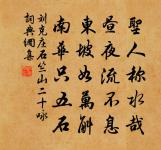 聖人稱水哉
晝夜流不息
東坡如萬斛
南華只五石
劉克庄石竺山二十咏
詞典網集